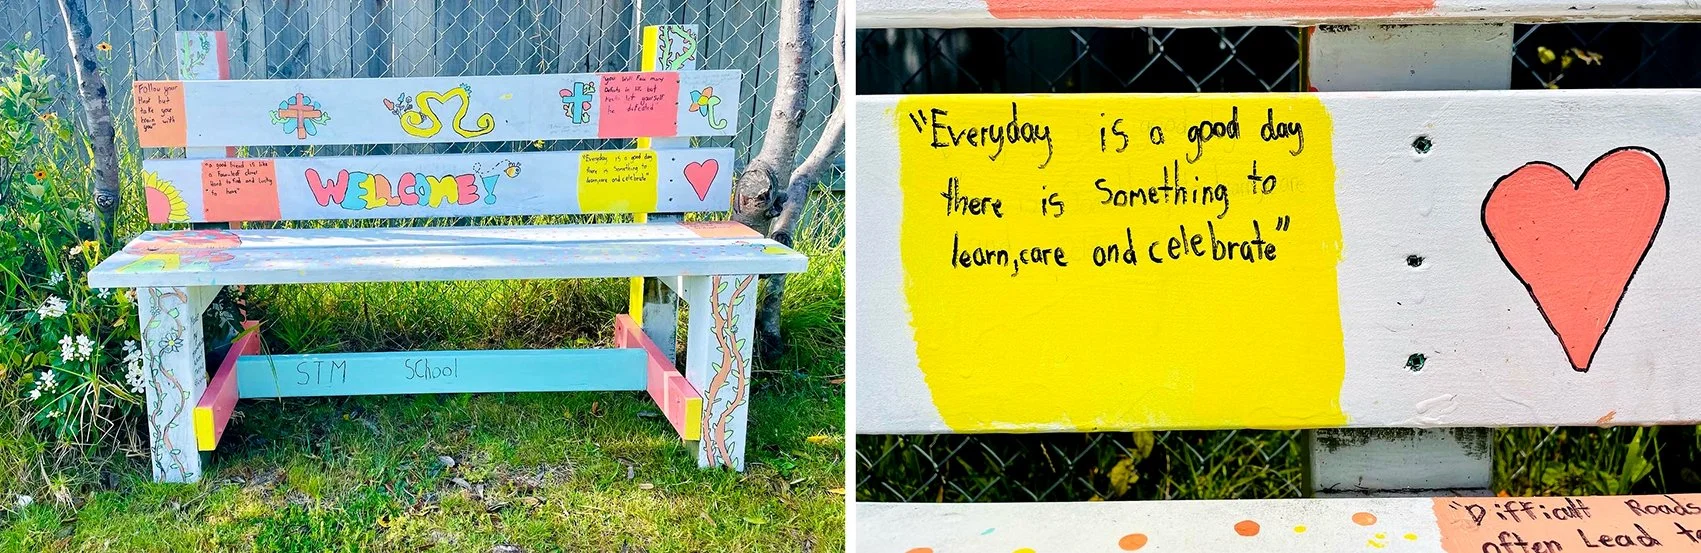 "Follow your
Heart but
take your
brain with
you"
"you will face many
Defeats in life but
never let yourself
be defeated"
"a good friend is like
a four-leaf clover
Hard to find and lucky
to have"
WELCOME!
"Everyday is a good day
there is something to
learn,care and celebrate"
STM SCHool
"Everyday is a good day
there is something to
learn,care and celebrate"
"Difficult Roads
often Lead t